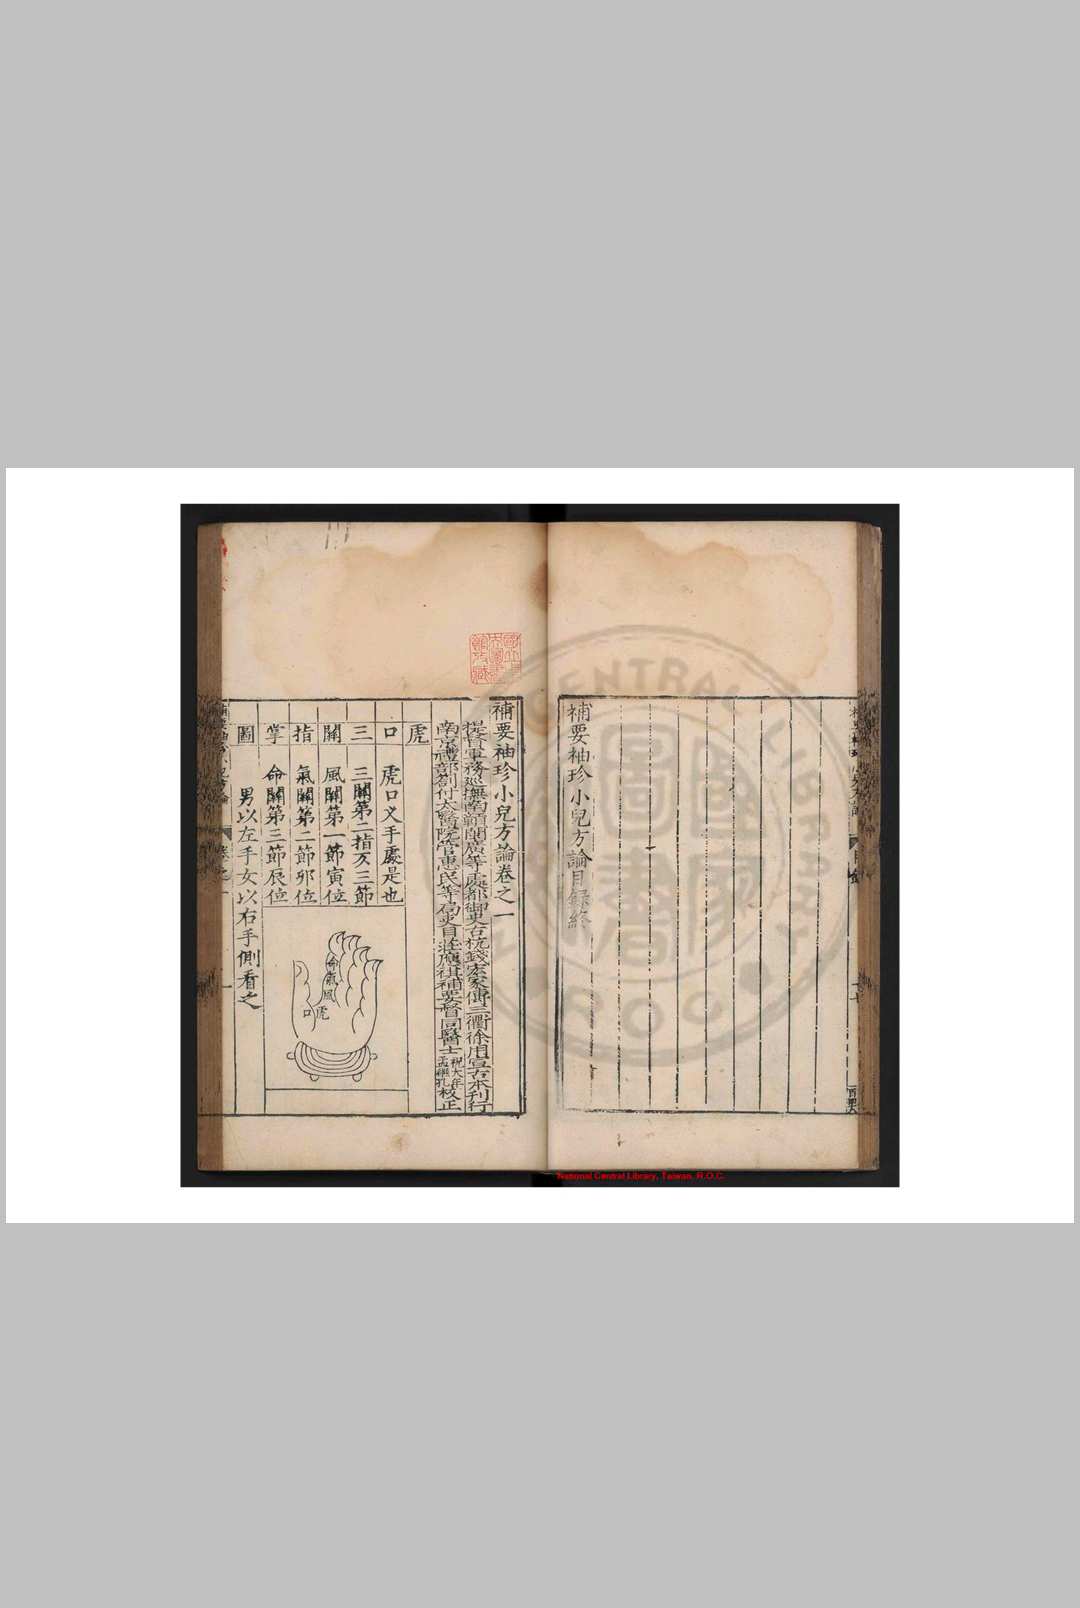 補要袖珍小兒方論目録終
補要袖珍小兒方論卷之一
提督軍務巡撫南贛閩廣等處都御史古杭錢宏家傳三衢徐用宣古本刊行
南京禮部劄付太醫院管惠民等局吏目莊應祺補要督同醫士祝大年孟繼孔校正
虎口三關指掌圖
虎口叉手處是也
三關第二指又三節
風關第一節寅位
氣關第二節卯位
命關第三節辰位
男以左手女以右手側看之
命
氣
風
虎口
國立中央圖書館收藏
國家圖書
CENTRAL LIBRARY
ROC
National Central Library, Taiwan, R.O.C.